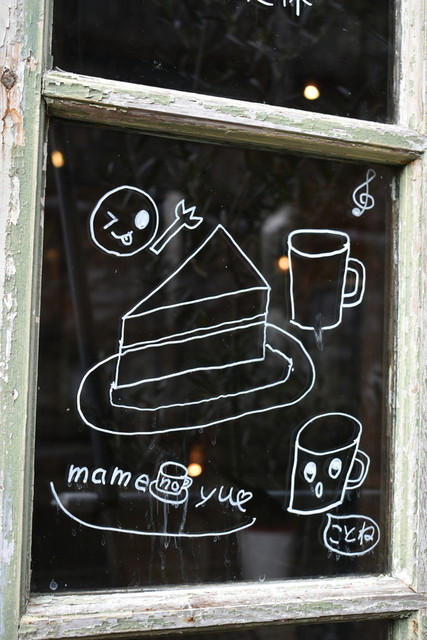 mame no yue
ことね